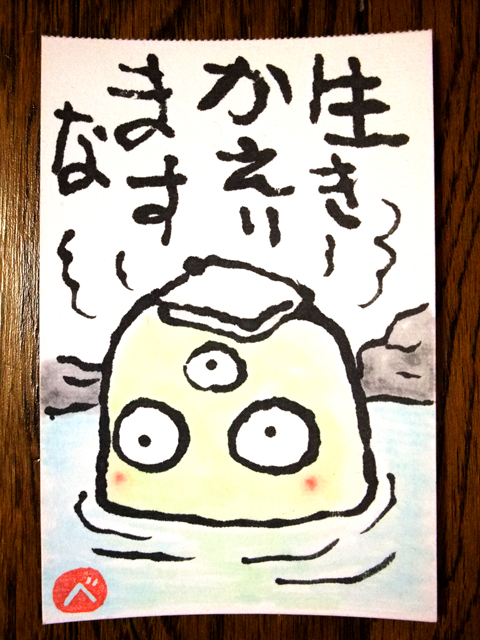 生き
かえり
ます
な
べ